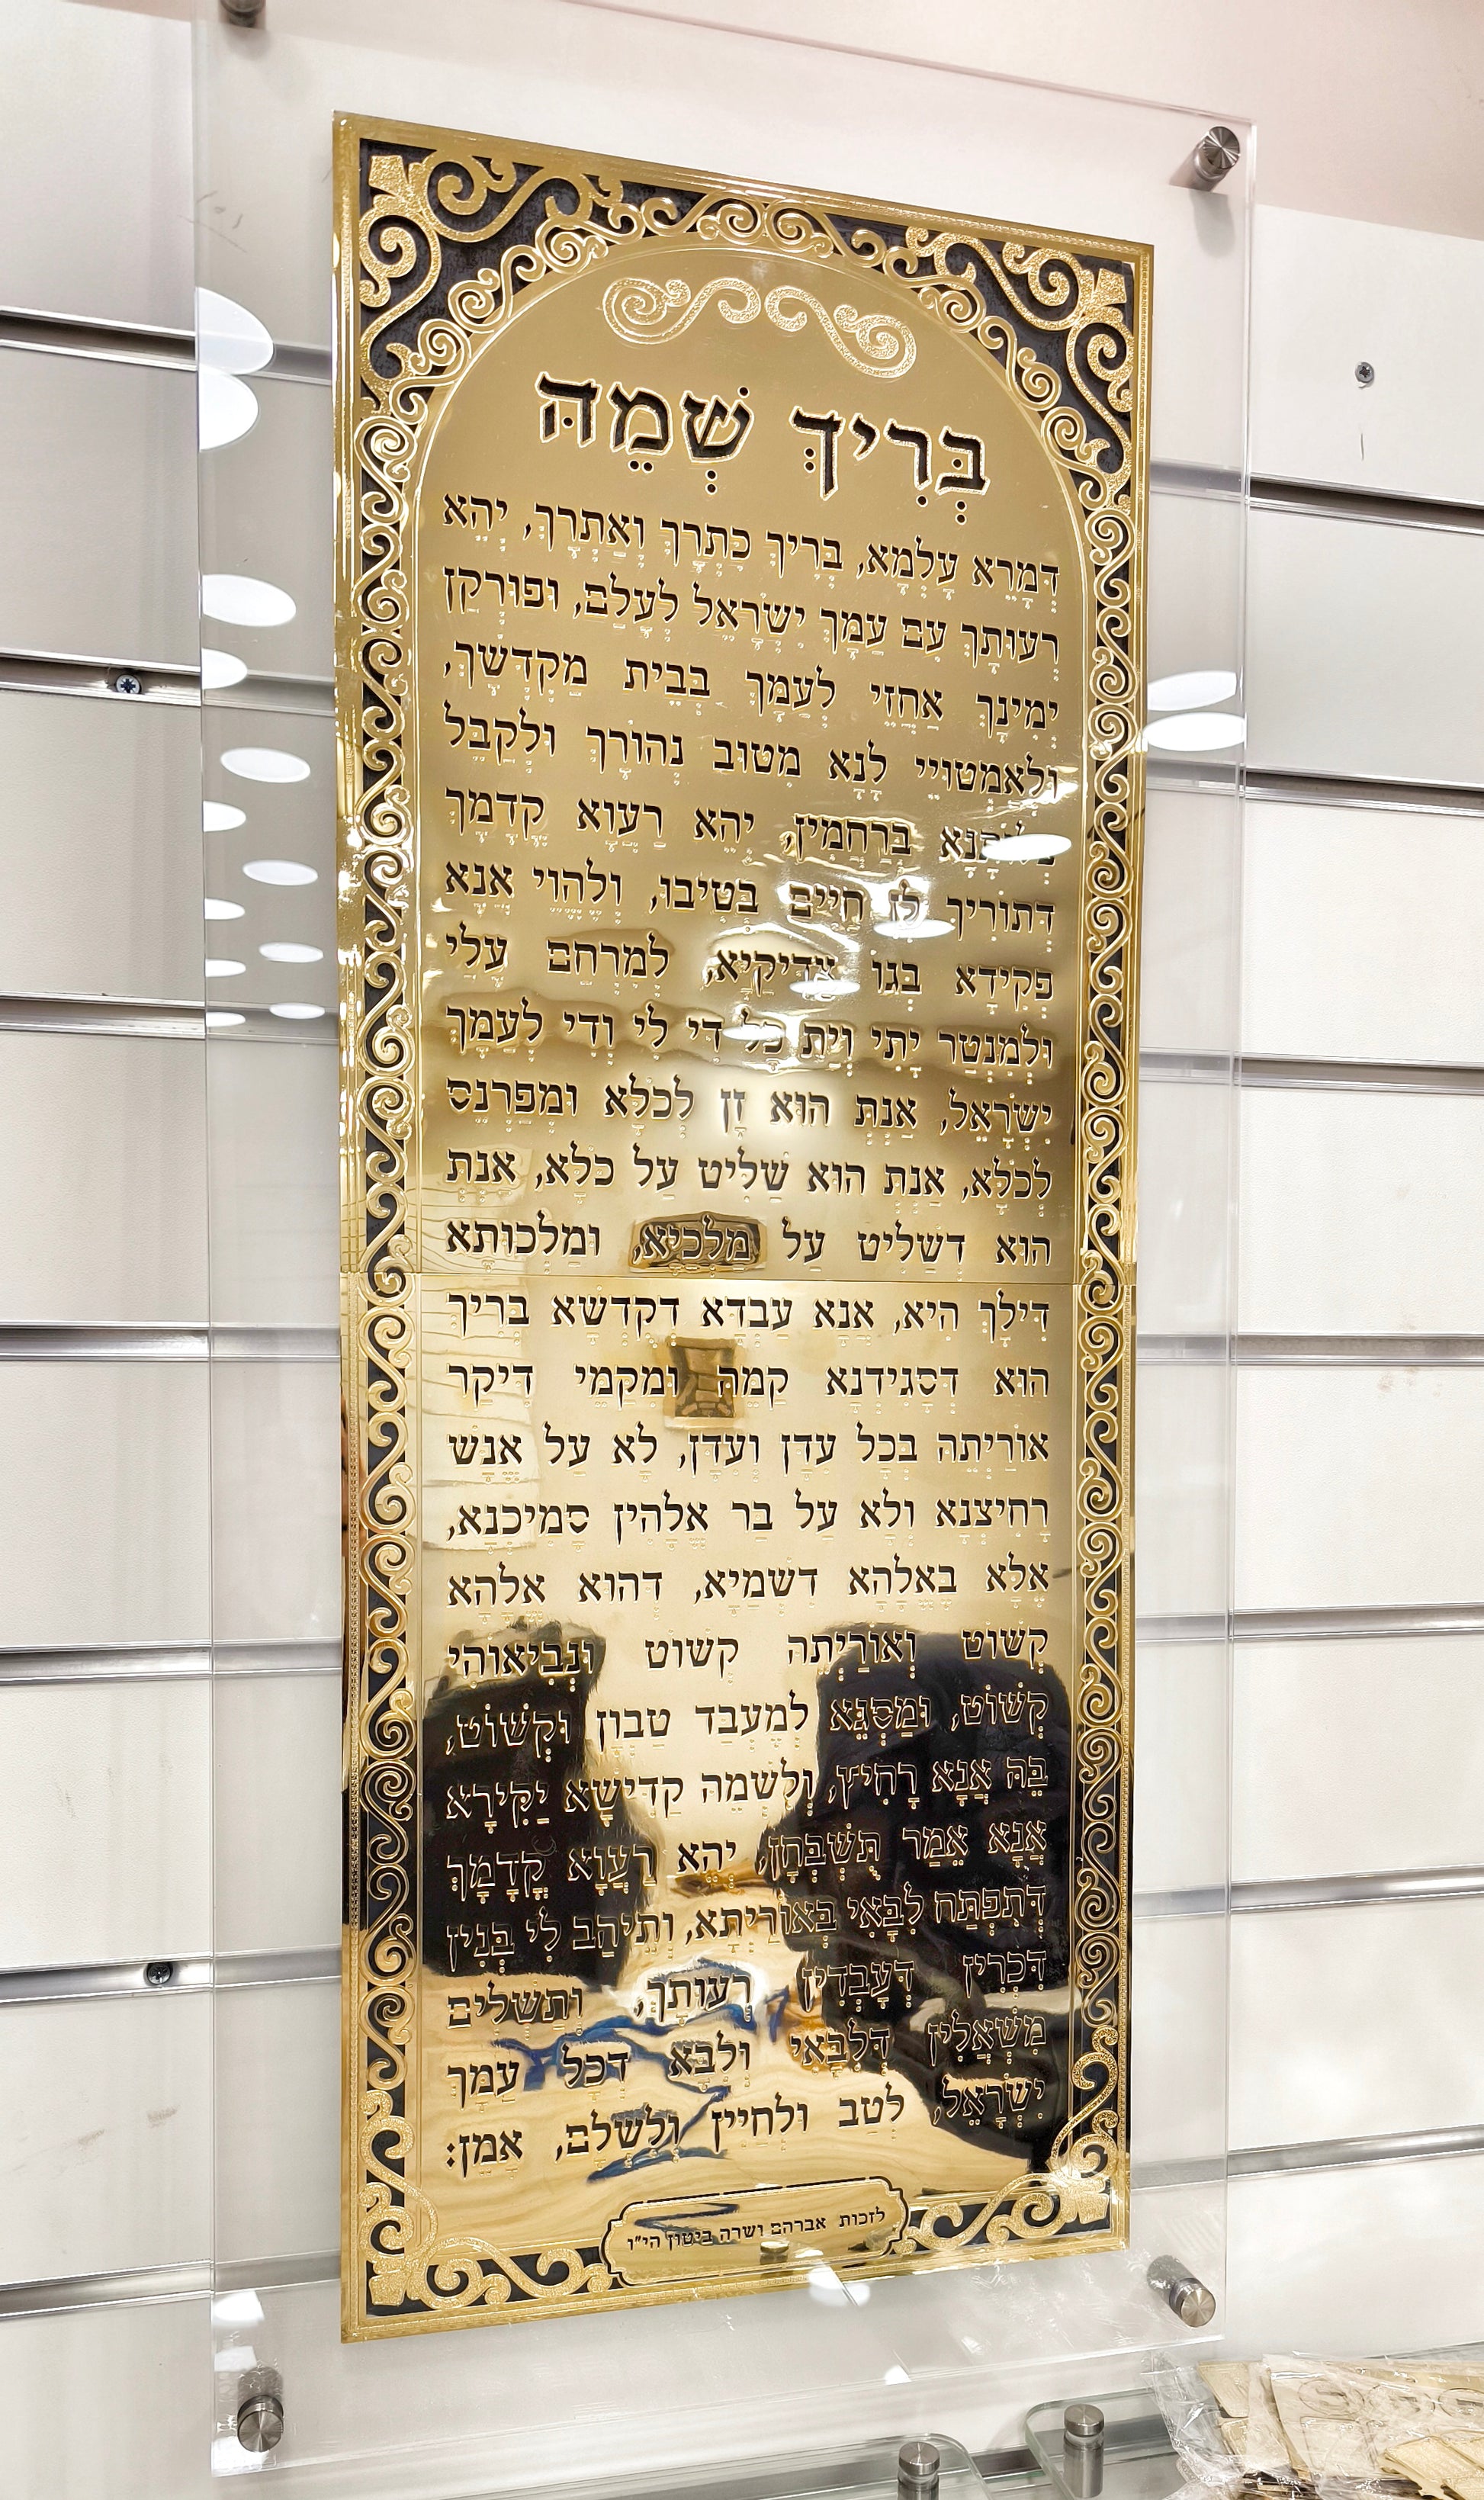 בְּרִיךְ שְׁמֵהּ
דְּמָרֵא עָלְמָא, בְּרִיךְ כִּתְרָךְ וְאַתְרָךְ, יְהֵא
רְעוּתָךְ עִם עַמָּךְ יִשְׂרָאֵל לְעָלַם, וּפוּרְקַן
יְמִינָךְ אַחֲזֵי לְעַמָּךְ בְּבֵית מַקְדְּשָׁךְ,
וּלְאַמְטוּיֵי לָנָא מִטּוּב נְהוֹרָךְ וּלְקַבֵּל
צְלוֹתָנָא בְּרַחֲמִין, יְהֵא רַעֲוָא קֳדָמָךְ
דְּתוֹרִיךְ לָן חַיִּים בְּטִיבוּ, וְלֶהֱוֵי אֲנָא
פְּקִידָא בְּגוֹ צַדִּיקַיָּא, לְמִרְחַם עָלַי
וּלְמִנְטַר יָתִי וְיַת כָּל דִּי לִי וְדִי לְעַמָּךְ
יִשְׂרָאֵל, אַנְתְּ הוּא זָן לְכֹלָּא וּמְפַרְנֵס
לְכֹלָּא, אַנְתְּ הוּא שַׁלִּיט עַל כֹּלָּא, אַנְתְּ
הוּא דְּשַׁלִּיט עַל מַלְכַיָּא, וּמַלְכוּתָא
דִּילָךְ הִיא, אֲנָא עַבְדָּא דְקֻדְשָׁא בְּרִיךְ
הוּא דְּסָגִידְנָא קַמֵּהּ וּמִקַּמֵּי דִּיקַר
אוֹרַיְתֵהּ בְּכָל עִדָּן וְעִדָּן, לָא עַל אֱנָשׁ
רָחִיצְנָא וְלָא עַל בַּר אֱלָהִין סָמִיכְנָא,
אֶלָּא בֶּאֱלָהָא דִשְׁמַיָּא, דְּהוּא אֱלָהָא
קְשׁוֹט וְאוֹרַיְתֵהּ קְשׁוֹט וּנְבִיאוֹהִי
קְשׁוֹט, וּמַסְגֵּא לְמֶעְבַּד טַבְוָן וּקְשׁוֹט,
בֵּהּ אֲנָא רָחִיץ, וְלִשְׁמֵהּ קַדִּישָׁא יַקִּירָא
אֲנָא אֵמַר תֻּשְׁבְּחָן, יְהֵא רַעֲוָא קֳדָמָךְ
דְּתִפְתַּח לִבָּאִי בְּאוֹרַיְתָא, וְתֵיהַב לִי בְּנִין
דִּכְרִין דְּעָבְדִין רְעוּתָךְ, וְתַשְׁלִים
מִשְׁאֲלִין דְּלִבָּאִי וְלִבָּא דְכָל עַמָּךְ
יִשְׂרָאֵל, לְטַב וּלְחַיִּין וְלִשְׁלָם, אָמֵן:
לזכות אברהם ושרה ביטון הי"ו